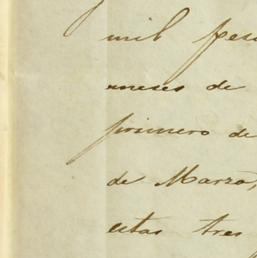 mil pes
meses de
primero de
de Marzo,
estas tres